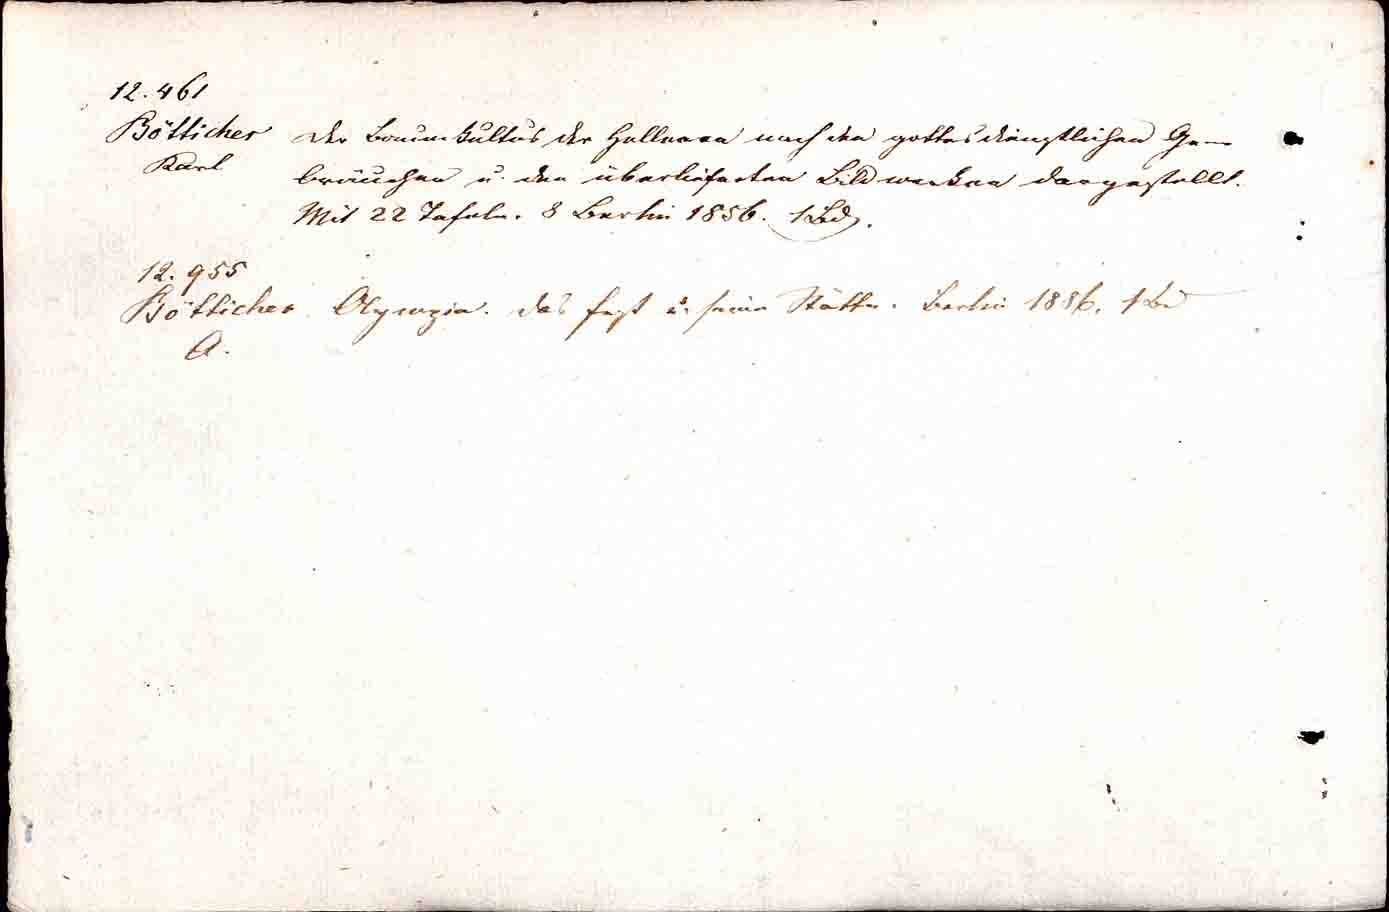 12.461
Bötticher Der Baumkultus der Hellenen nach den gottesdienstlichen Ge-
Karl bräuchen u. den überlieferten Bildwerken dargestellt.
Mit 22 Tafeln. 8 Berlin 1856. 1 Bd.
12.955
Bötticher Olympia. Das Fest u. seine Stätte. Berlin 1886. 1 Bd
A.